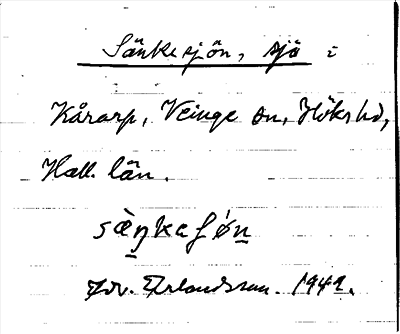 Sänkesjön, sjö i
Kårarp, Veinge sn, Höks hd,
Hall. län.
sæ̀ŋkaʃǿn
Edv. Erlandsson 1942.